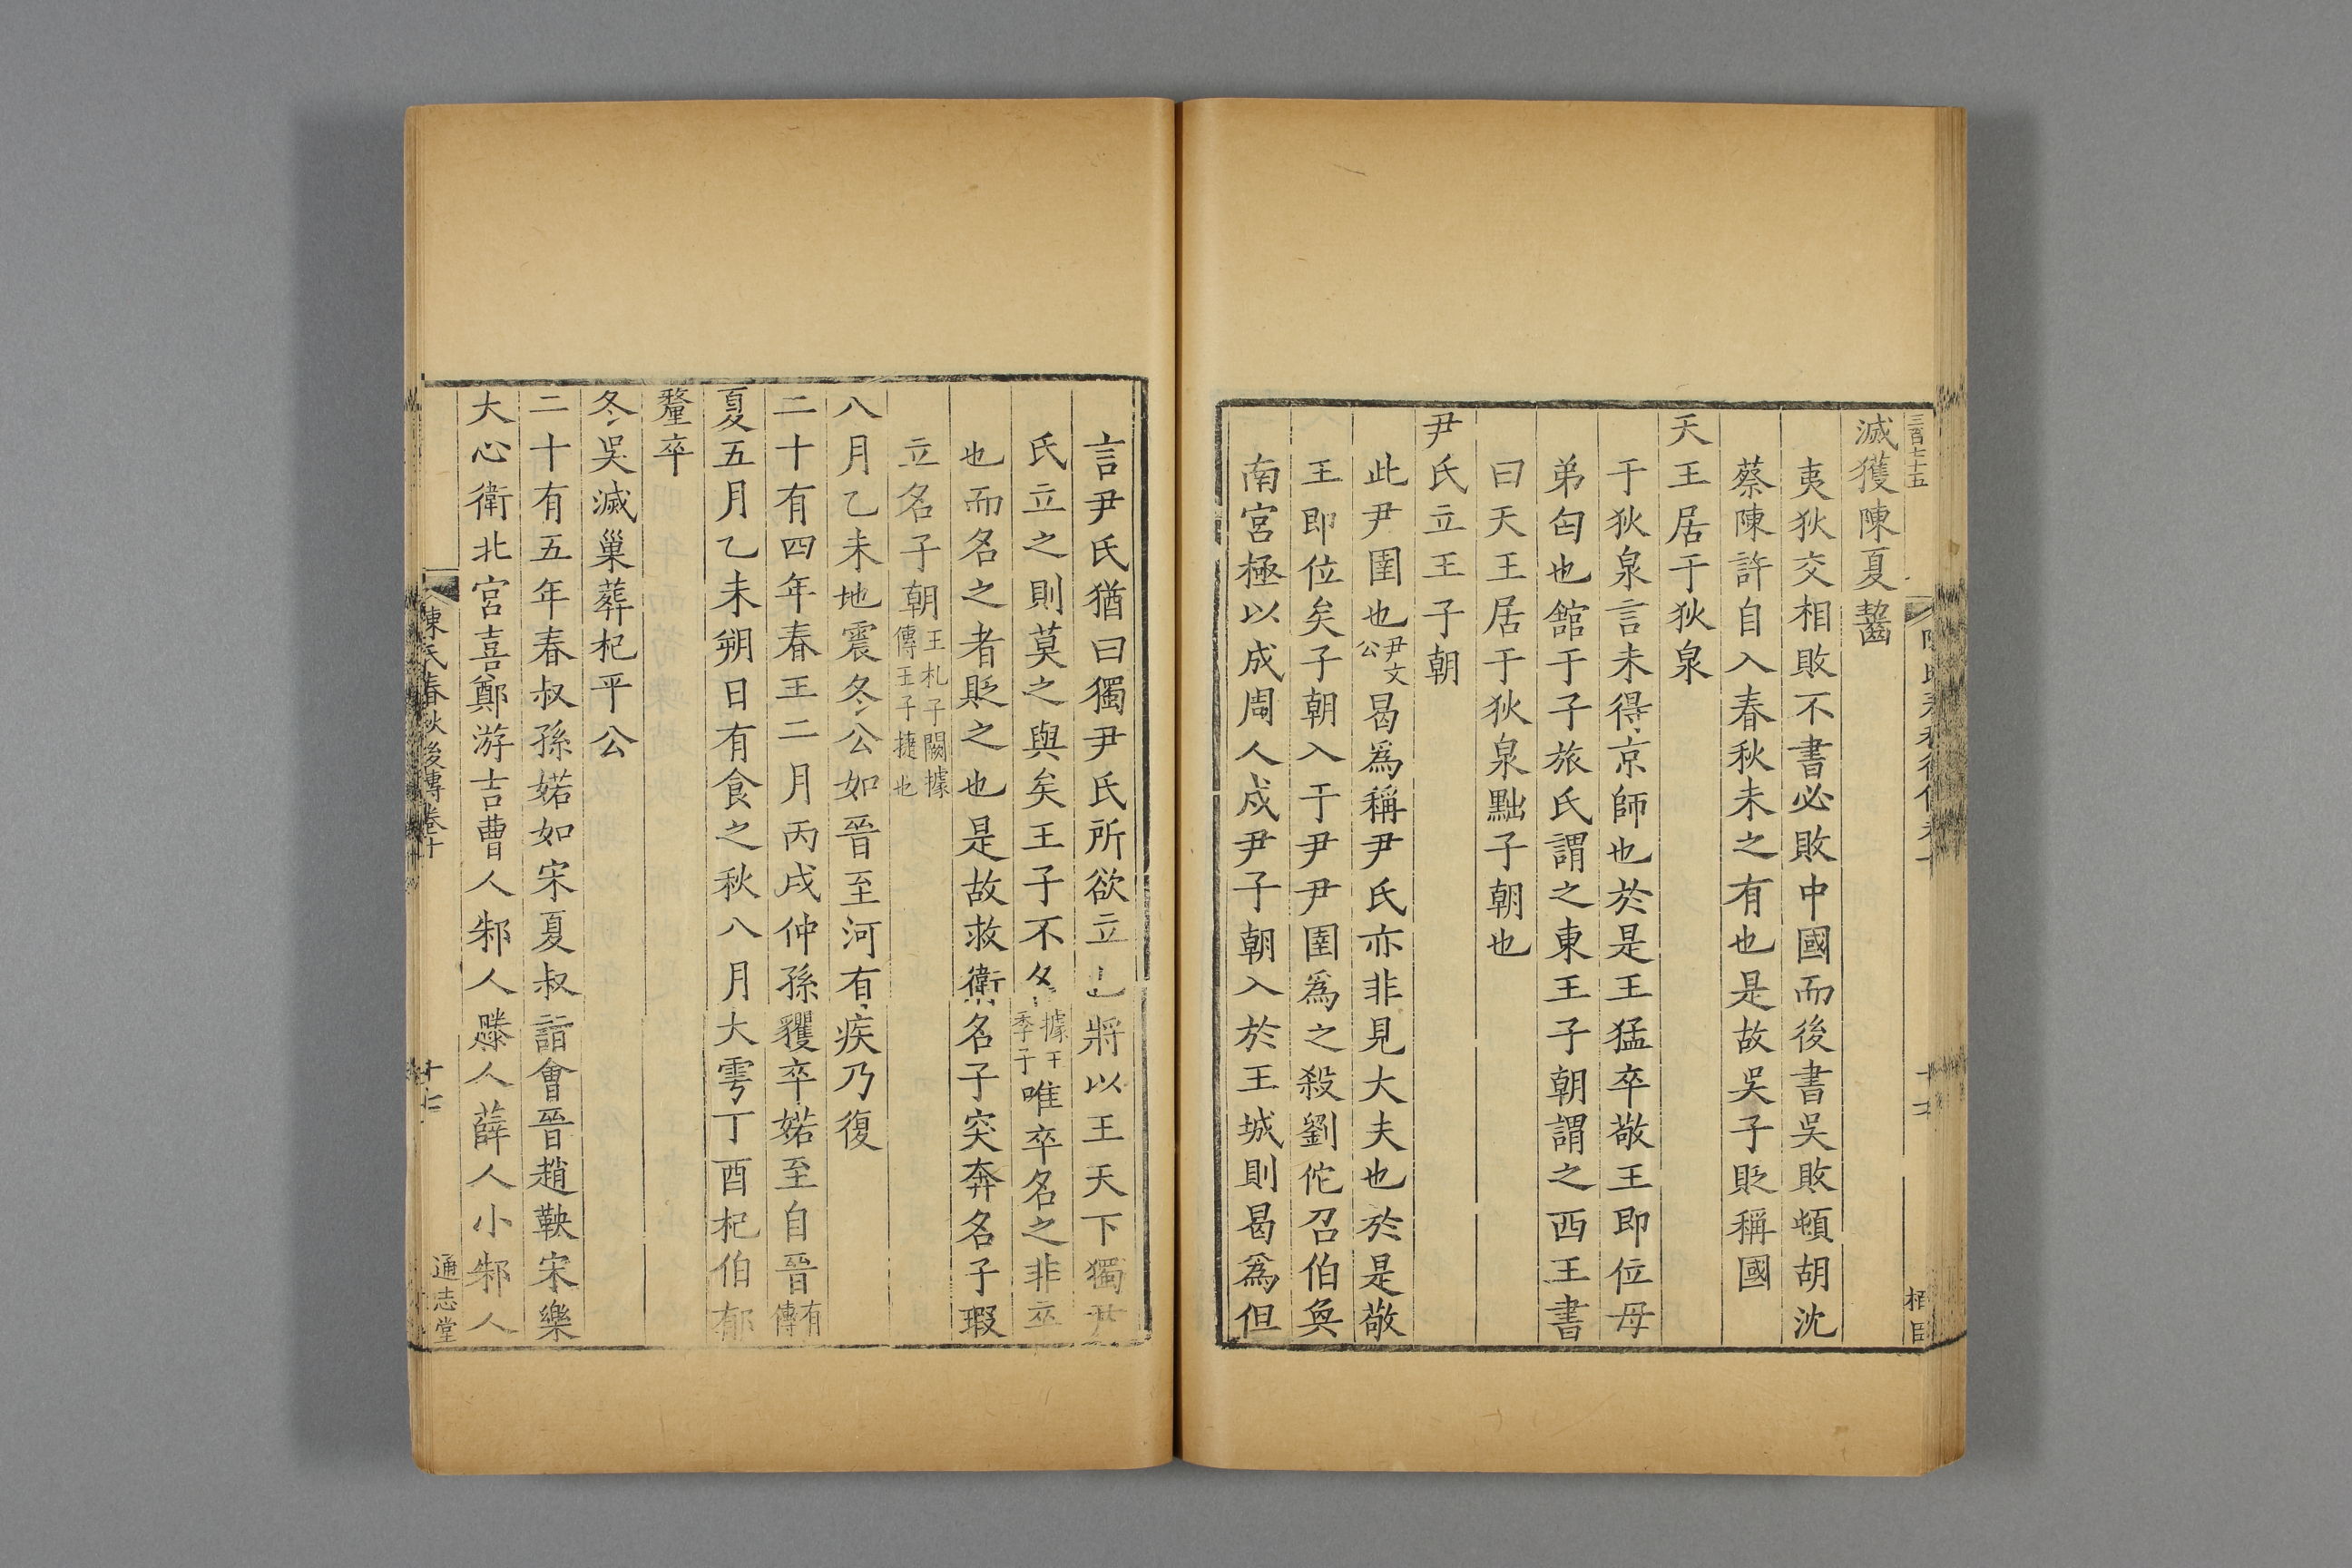 三百七十五
滅獲陳夏齧
夷狄交相敗不書必敗中國而後書吳敗頓胡沈
蔡陳許自入春秋未之有也是故吳子貶稱國
天王居于狄泉
于狄泉言未得京師也於是王猛卒敬王即位母
弟匄也館于子旅氏謂之東王子朝謂之西王書
曰天王居于狄泉黜子朝也
尹氏立王子朝
此尹圉也尹文公曷爲稱尹氏亦非見大夫也於是敬
王即位矣子朝入于尹尹圉爲之殺劉佗召伯奐
南宮極以成周人戍尹子朝入於王城則曷爲但
言尹氏猶曰獨尹氏所欲立也將以王天下獨尹
氏立之則莫之與矣王子不名據王季子唯卒名之非卒
也而名之者貶之也是故救衛名子突奔名子瑕
立名子朝王札子闕據傳王子捷也
八月乙未地震冬公如晉至河有疾乃復
二十有四年春王二月丙戌仲孫貜卒婼至自晉有傳
夏五月乙未朔日有食之秋八月大雩丁酉杞伯郁
釐卒
冬吳滅巢葬杞平公
二十有五年春叔孫婼如宋夏叔詣會晉趙鞅宋樂
大心衛北宮喜鄭游吉曹人邾人滕人薛人小邾人
陳氏春秋後傳卷十
十七
通志堂